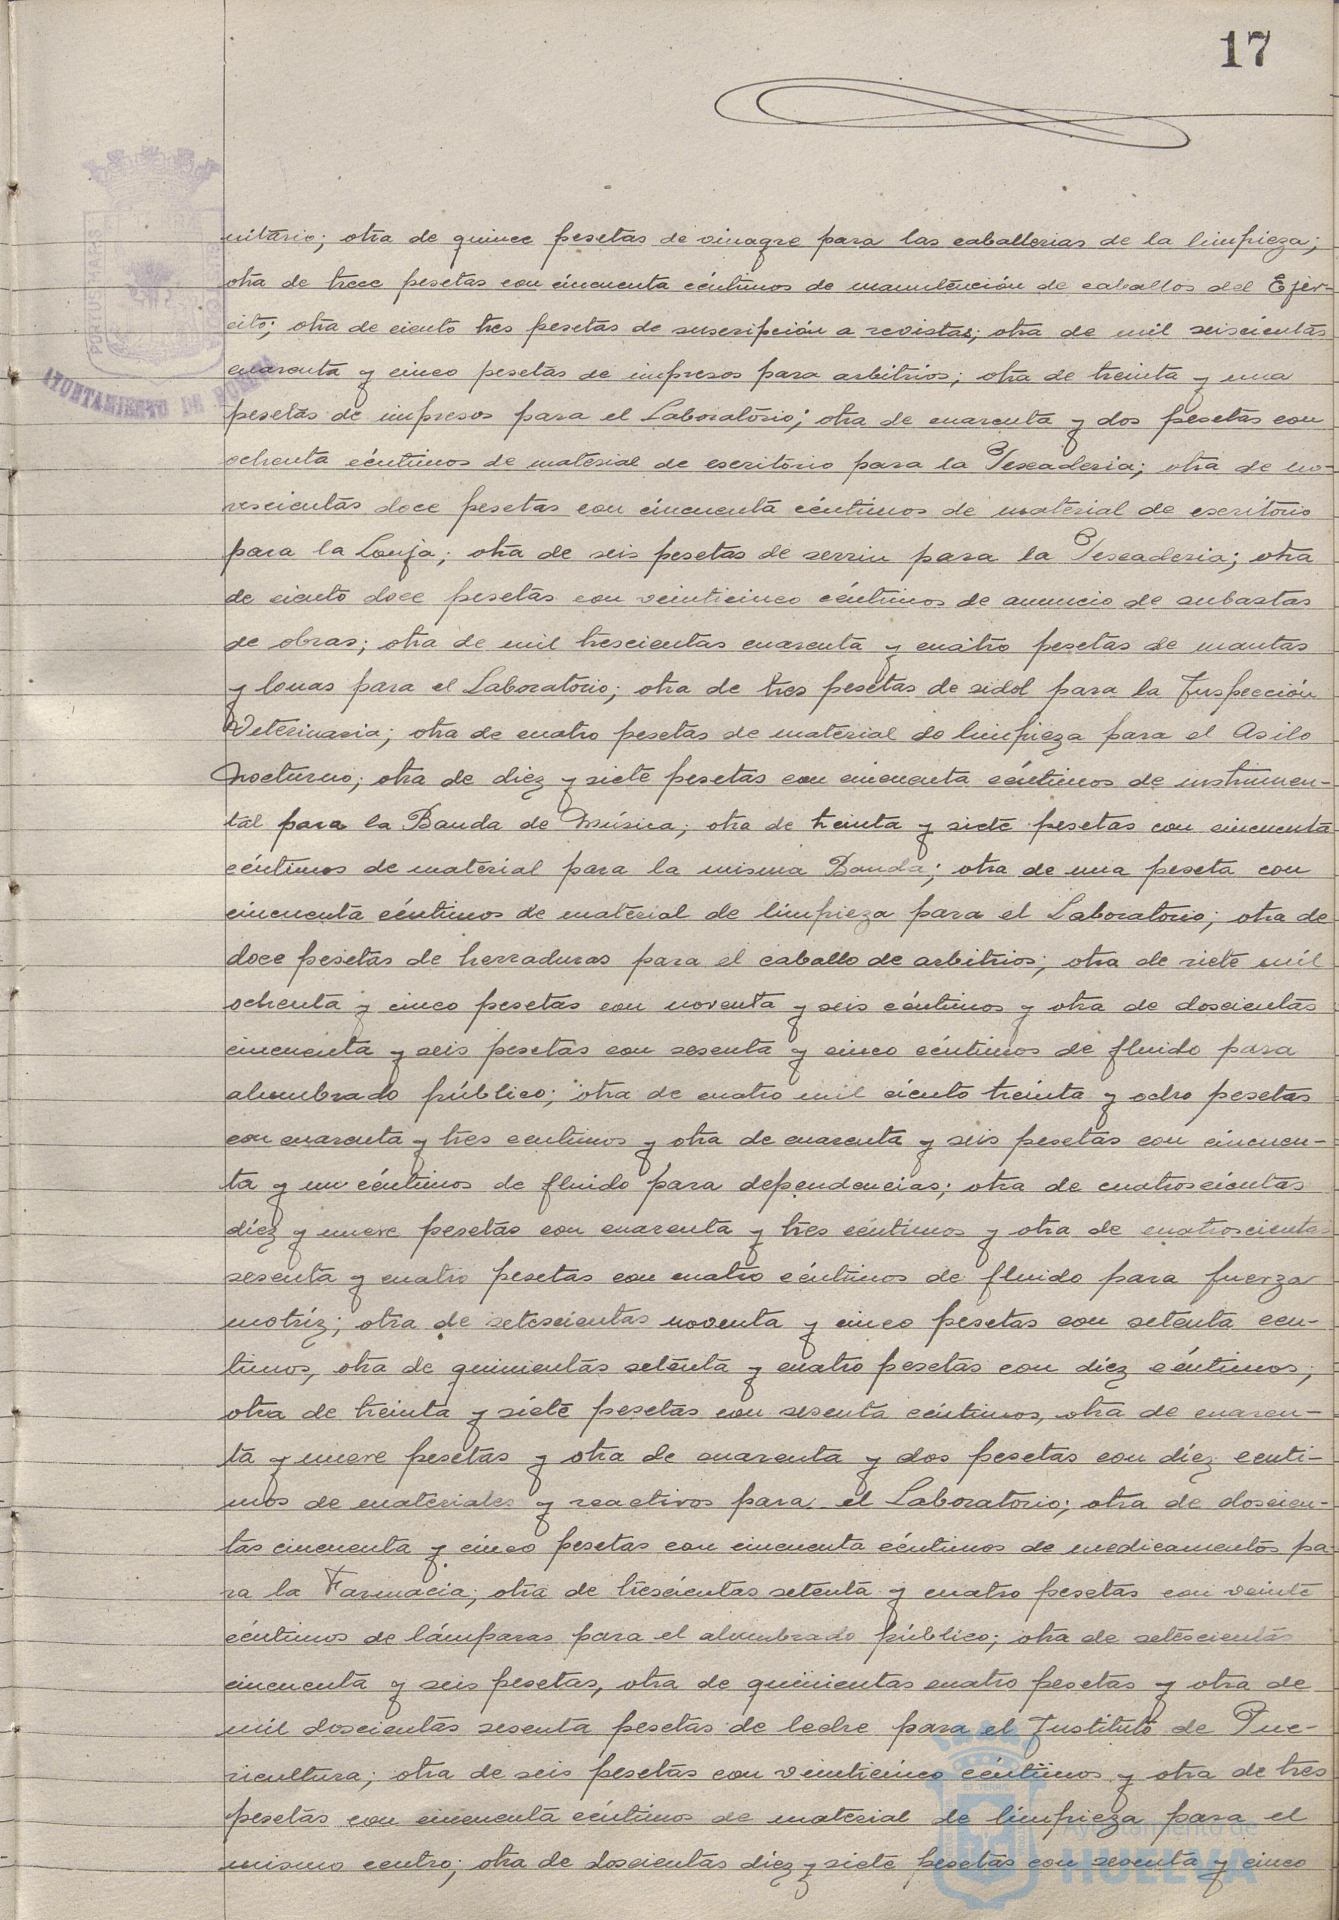 17
PORTUS MARIS
AYUNTAMIENTO DE HUELVA
nitario; otra de quince pesetas de vinagre para las caballerias de la limpieza;
otra de trece pesetas con cincuenta céntimos de manutención de caballos del Ejér-
cito; otra de ciento tres pesetas de suscripción a revistas; otra de mil seiscientas
cuarenta y cinco pesetas de impresos para arbitrios; otra de treinta y una
pesetas de impresos para el Laboratorio; otra de cuarenta y dos pesetas con
ochenta céntimos de material de escritorio para la Pescaderia; otra de no-
vescientas doce pesetas con cincuenta céntimos de material de escritorio
para la Lonja; otra de seis pesetas de serrin para la Pescaderia; otra
de ciento doce pesetas con veinticinco céntimos de anuncio de subastas
de obras; otra de mil trescientas cuarenta y cuatro pesetas de mantas
y lonas para el Laboratorio; otra de tres pesetas de sidol para la Inspección
Veterinaria; otra de cuatro pesetas de material de limpieza para el Asilo
Nocturno; otra de diez y siete pesetas con cincuenta céntimos de instrumen-
tal para la Banda de Música; otra de treinta y siete pesetas con cincuenta
céntimos de material para la misma Banda; otra de una peseta con
cincuenta céntimos de material de limpieza para el Laboratorio; otra de
doce pesetas de herraduras para el caballo de arbitrios; otra de siete mil
ochenta y cinco pesetas con noventa y seis céntimos y otra de doscientas
cincuenta y seis pesetas con sesenta y cinco céntimos de fluido para
alumbrado público; otra de cuatro mil ciento treinta y ocho pesetas
con cuarenta y tres centimos y otra de cuarenta y seis pesetas con cincuen-
ta y un céntimos de fluido para dependencias; otra de cuatroscientas
diez y nueve pesetas con cuarenta y tres céntimos y otra de cuatroscientas
sesenta y cuatro pesetas con cuatro céntimos de fluido para fuerza
motríz; otra de setescientas noventa y cinco pesetas con setenta cen-
timos, otra de quinientas setenta y cuatro pesetas con diez céntimos;
otra de treinta y siete pesetas con sesenta céntimos, otra de cuaren-
ta y nueve pesetas y otra de cuarenta y dos pesetas con diez centi-
mos de materiales y reactivos para el Laboratorio; otra de doscien-
tas cincuenta y cinco pesetas con cincuenta céntimos de medicamentos pa-
ra la Farmacia; otra de trescientas setenta y cuatro pesetas con veinte
céntimos de lámparas para el alumbrado público; otra de setescientas
cincuenta y seis pesetas, otra de quinientas cuatro pesetas y otra de
mil doscientas sesenta pesetas de leche para el Instituto de Pue-
ricultura; otra de seis pesetas con veinticinco céntimos y otra de tres
pesetas con cincuenta céntimos de material de limpieza para el
mismo centro; otra de doscientas diez y siete pesetas con sesenta y cinco
Ayuntamiento de
HUELVA